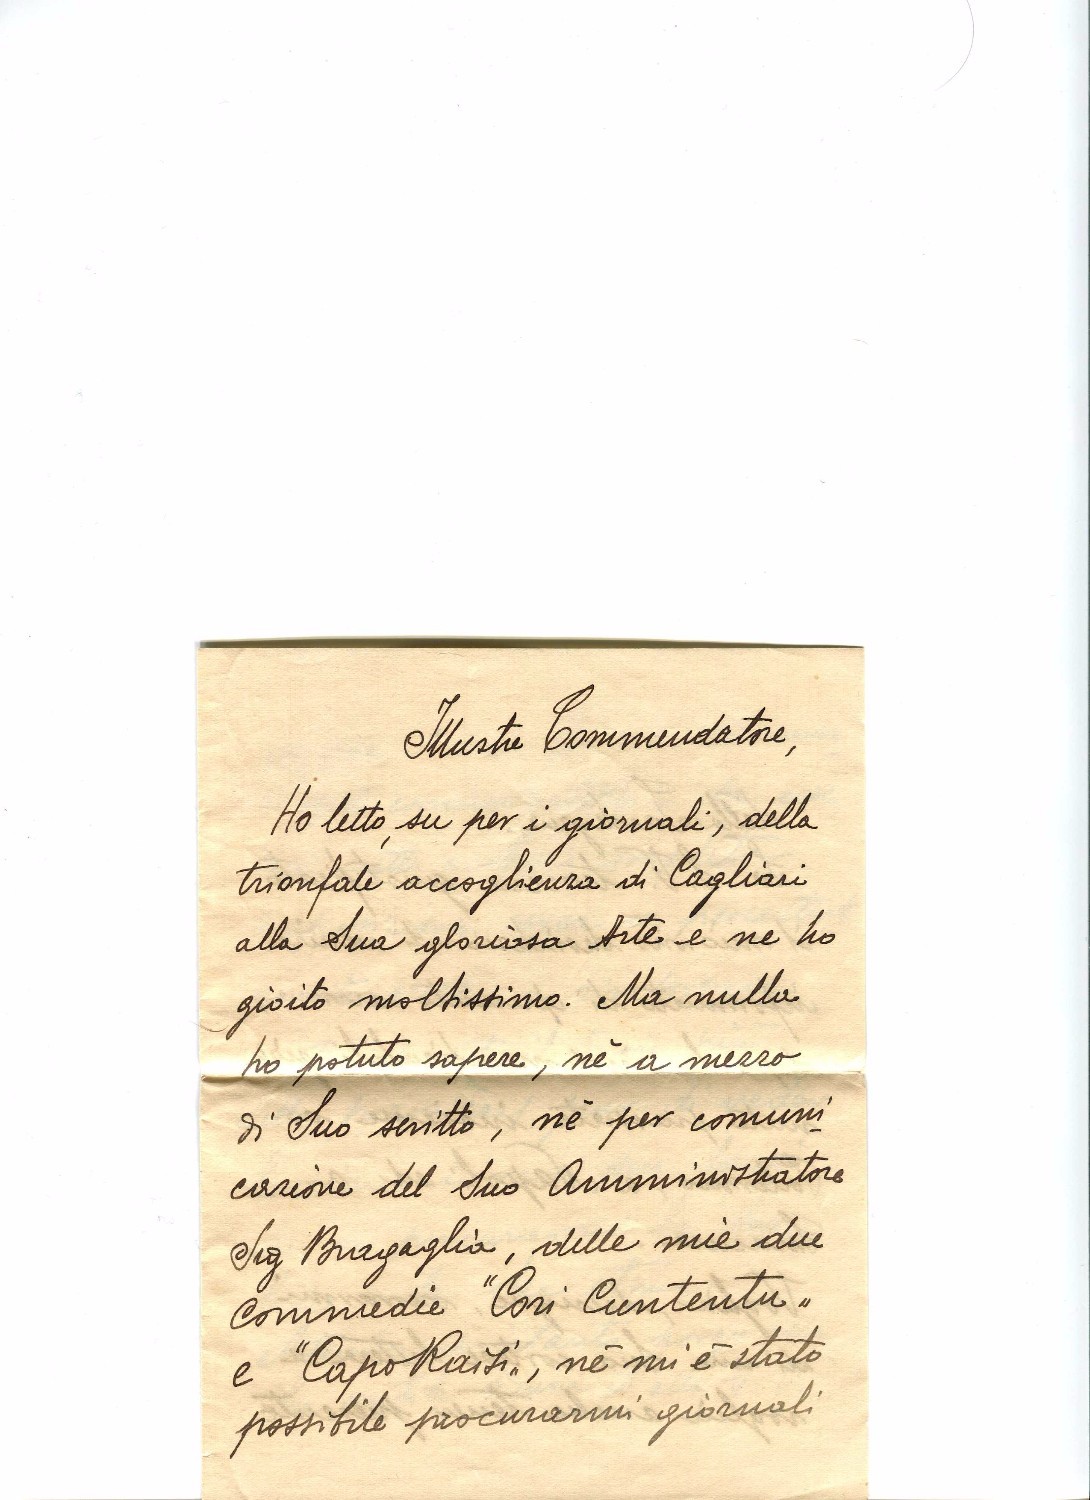 Illustre Commendatore,
Ho letto, su per i giornali, della
trionfale accoglienza di Cagliari
alla Sua gloriosa Arte e ne ho
gioito moltissimo. Ma nulla
ho potuto sapere, nè a mezzo
di Suo scritto, nè per comuni
cazione del Suo Amministratore
Sig Bragaglia, delle mie due
commedie "Cori Cuntentu"
e "Capo Raisi", nè mi è stato
possibile procurarmi giornali